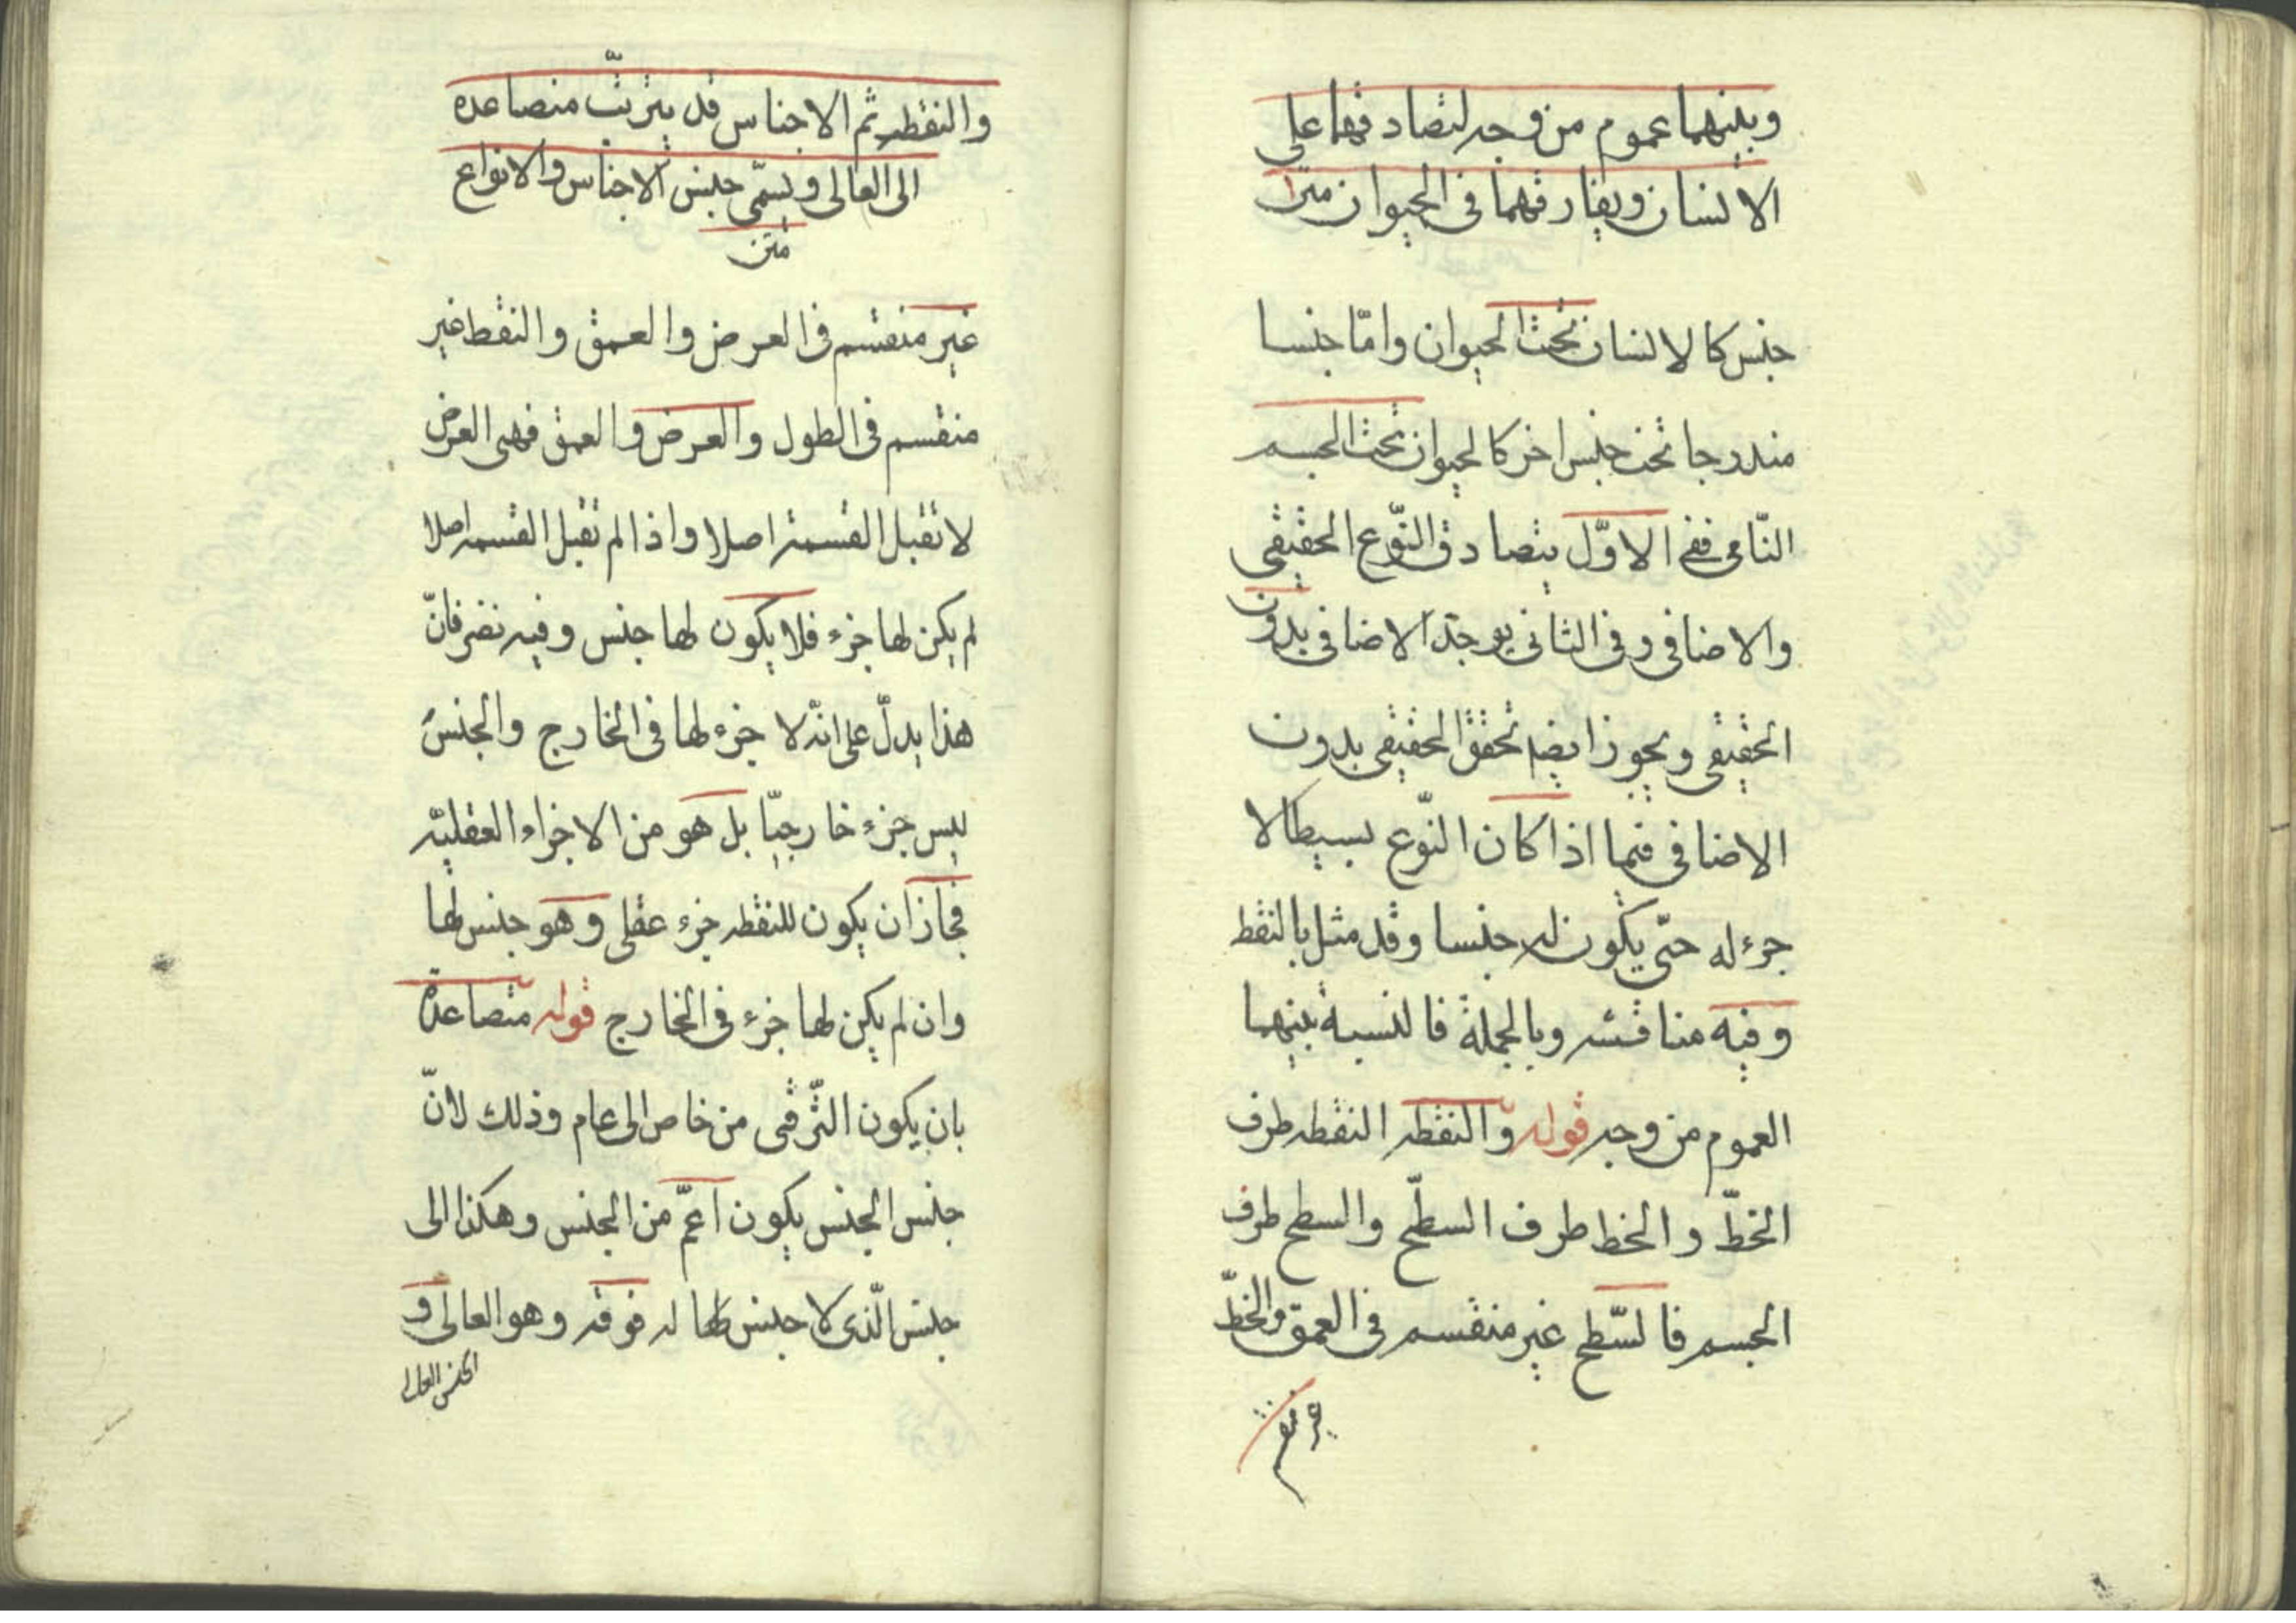 وبينهما عموم من وجه لتصادقهما على
الانسان وتفارقهما في الحيوان متن
جنس كالانسان تحت الحيوان وامّا جنسا
مندرجا تحت جنس اخر كالحيوان تحت الجسم
النّامى ففى الاوّل يتصادق النّوع الحقيقى
والاضافى وفى الثانى يوجد الاضافى بدون
الحقيقى ويجوز ايضا تحقق الحقيقى بدون
الاضافى فيما اذا كان النّوع بسيطا لا
جزء له حتّى يكون له جنسا وقد مثل بالنقطه
وفيه مناقشه وبالجملة فالنسبة بينهما
العموم من وجه قوله والنقطه النقطه طرف
الخطّ والخط طرف السطّح والسطح طرف
الجسم فالسّطح غير منقسم فى العمق والخطّ
غير منقسم
والنقطه ثم الاجناس قد يترتّب متصاعده
الى العالى ويسمّى جنس الاجناس والانواع
متن
غير منقسم فى العرض والعمق والنقط غير
منقسم فى الطول والعرض والعمق فهى العرض
لا تقبل القسمة اصلا واذا لم تقبل القسمه اصلا
لم يكن لها جزء فلا يكون لها جنس وفيه نضر فانّ
هذا يدلّ على انّه لا جزء لها فى الخارج والجنس
ليس جزء خارجيّا بل هو من الاجزاء العقليّه
فجاز ان يكون للنقطه جزء عقلى وهو جنس لها
وان لم يكن لها جزء فى الخارج قوله متصاعدة
بان يكون التّرقى من خاص الى عام وذلك لانّ
جنس الجنس يكون اعمّ من الجنس وهكذا الى
جنس الّذى لا جنس لها له فوقه وهو العالى و